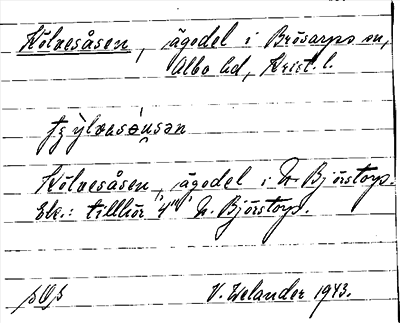 Kölvesåsen, ägodel i Brösarps sn,
Albo hd, Krist. l.
Kölvesåsen, ägodel i N. Björstorp.
Ek.: tillhör "4" N. Björstorp.
V. Welander 1943.